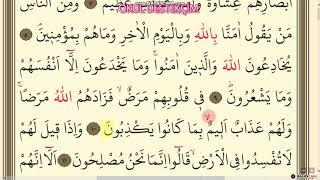 OKUL DESTEKÇİM
اَبْصَارِهِمْ غِشَاوَةٌ عَظ۪يمٌ ﴿٧﴾ وَمِنَ النَّاسِ
مَنْ يَقُولُ اٰمَنَّا بِاللّٰهِ وَبِالْيَوْمِ الْاٰخِرِ وَمَاهُمْ بِمُؤْمِن۪ينَۢ ﴿٨﴾
يُخَادِعُونَ اللّٰهَ وَالَّذ۪ينَ اٰمَنُواۚ وَمَا يَخْدَعُونَ اِلَّٓا اَنْفُسَهُمْ
وَمَا يَشْعُرُونَۜ ﴿٩﴾ ف۪ي قُلُوبِهِمْ مَرَضٌۙ فَزَادَهُمُ اللّٰهُ مَرَضًاۚ
وَلَهُمْ عَذَابٌ اَل۪يمٌۙ بِمَا كَانُوا يَكْذِبُونَ ﴿١٠﴾ وَاِذَا ق۪يلَ لَهُمْ
لَا تُفْسِدُوا فِي الْاَرْضِۙ قَالُٓوا اِنَّمَا نَحْنُ مُصْلِحُونَ ﴿١١﴾ اَلَٓا اِنَّهُمْ